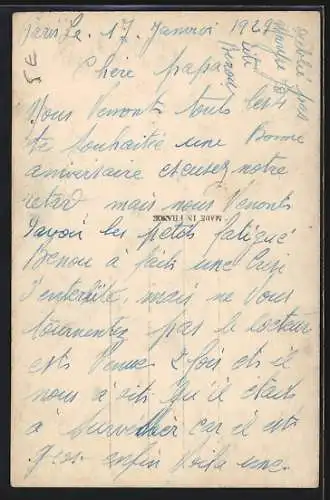 Paris le. 17. Janvroi 192
Chère papa
Nous Venons tous les
te Souhaitée une Bonne
aniversaire escusez notre
retard mais nous Venonts
d'avoir les petits fatigué
Benou à faits une Crise
d'enterite, mais ne Vous
tourmentez pas le docteur
est Venue 2 fois et il
nous à dits qu'il etais
à Surveiller car il est
gros enfin Voila une
MADE IN FRANCE
pas
Benou